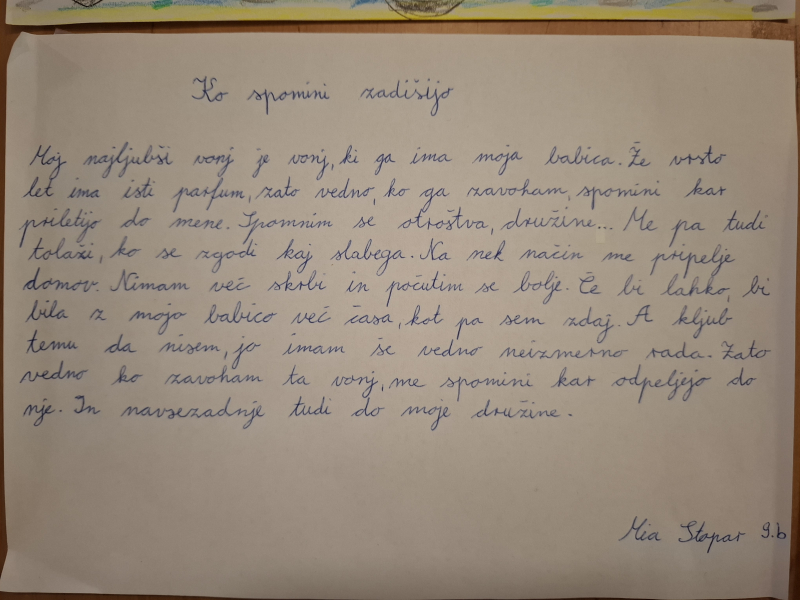 Ko spomini zadišijo
Moj najljubši vonj je vonj, ki ga ima moja babica. Že vrsto
let ima isti parfum, zato vedno, ko ga zavoham, spomini kar
priletijo do mene. Spomnim se otroštva, družine... Me pa tudi
tolaži, ko se zgodi kaj slabega. Na nek način me pripelje
domov. Nimam več skrbi in počutim se bolje. Če bi lahko, bi
bila z mojo babico več časa, kot pa sem zdaj. A kljub
temu da nisem, jo imam še vedno neizmerno rada. Zato
vedno ko zavoham ta vonj, me spomini kar odpeljejo do
nje. In navsezadnje tudi do moje družine.
Mia Stopar 9.b